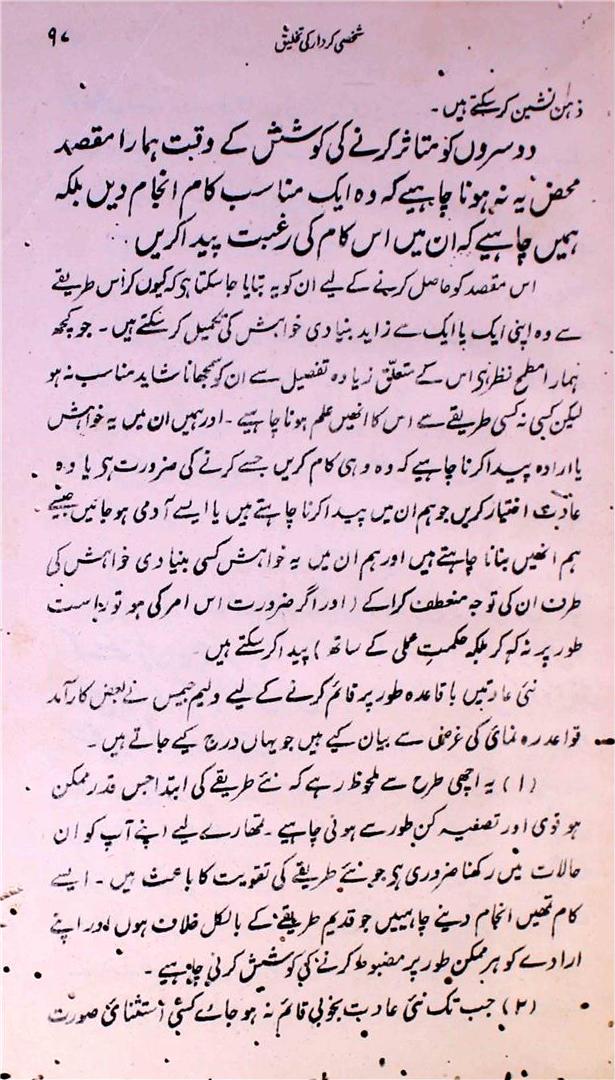 شخصی کردار کی تخلیق ۹۷
ذہن نشین کر سکتے ہیں ۔
دوسروں کو متاثر کرنے کی کوشش کے وقت ہمارا مقصد
محض یہ نہ ہونا چاہیے کہ وہ ایک مناسب کام انجام دیں بلکہ
ہمیں چاہیے کہ ان میں اس کام کی رغبت پیدا کریں
اس مقصد کو حاصل کرنے کے لیے ان کو یہ بتایا جا سکتا ہی کہ کیوں کر اس طریقے
سے وہ اپنی ایک یا ایک سے زاید بنیادی خواہش کی تکمیل کر سکتے ہیں ۔ جو کچھ
ہمارا مطمح نظر ہی اس کے متعلق زیادہ تفصیل سے ان کو سمجھانا شاید مناسب نہ ہو
لیکن کسی نہ کسی طریقے سے اس کا انھیں علم ہونا چاہیے ۔ اور ہمیں ان میں یہ خواہش
یا ارادہ پیدا کرنا چاہیے کہ وہ وہی کام کریں جسے کرنے کی ضرورت ہی یا وہ
عادت اختیار کریں جو ہم ان میں پیدا کرنا چاہتے ہیں یا ایسے آدمی ہو جائیں جیسے
ہم انھیں بنانا چاہتے ہیں اور ہم ان میں یہ خواہش کسی بنیادی خواہش کی
طرف ان کی توجہ منعطف کرا کے ( اور اگر ضرورت اس امر کی ہو تو راست
طور پر نہ کہہ کر بلکہ حکمت عملی کے ساتھ ) پیدا کر سکتے ہیں ۔
نئی عادتیں باقاعدہ طور پر قائم کرنے کے لیے ولیم جیمس نے بعض کارآمد
قواعد رہ نمائی کی غرض سے بیان کیے ہیں جو یہاں درج کیے جاتے ہیں ۔
(۱) یہ اچھی طرح سے ملحوظ رہے کہ نئے طریقے کی ابتدا جس قدر ممکن
ہو قوی اور تصفیہ کن طور سے ہونی چاہیے ۔ تمھارے لیے اپنے آپ کو ان
حالات میں رکھنا ضروری ہی جو نئے طریقے کی تقویت کا باعث ہیں ۔ ایسے
کام تمھیں انجام دینے چاہییں جو قدیم طریقے کے بالکل خلاف ہوں اور اپنے
ارادے کو ہر ممکن طور پر مضبوط کرنے کی کوشش کرنی چاہیے ۔
(۲) جب تک نئی عادت بخوبی قائم نہ ہو جائے کسی استثنائی صورت